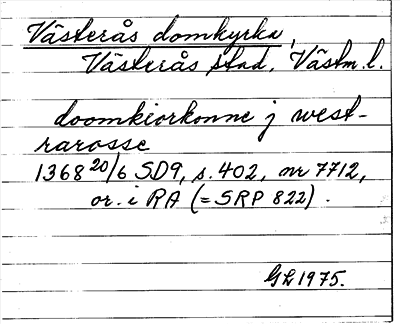 Västerås domkyrka,
Västerås stad, Västm. l.
doomkiorkonne j west-
rarosse
1368 20/6 SD9, s. 402, nr 7712,
or. i RA (= SRP 822).
GL 1975.